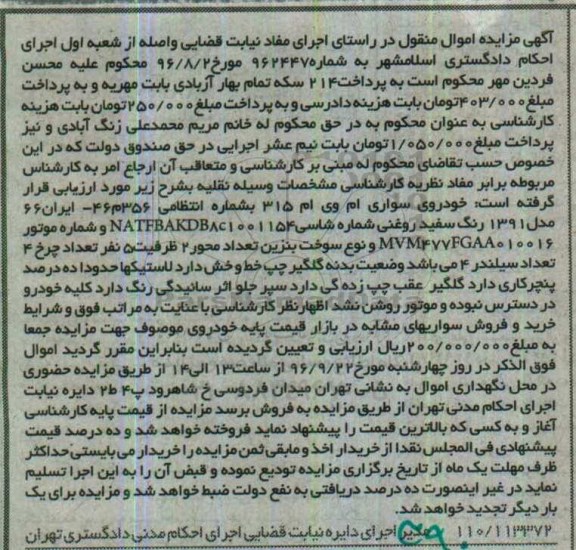 آگهی مزایده اموال منقول در راستای اجرای مفاد نیابت قضایی واصله از شعبه اول اجرای
احکام دادگستری اسلامشهر به شماره ۹۶۲۴۴۷ مورخ ۹۶/۸/۲ محکوم علیه محسن
فردین مهر محکوم است به پرداخت ۲۱۴ سکه تمام بهار آزبادی بابت مهریه و به پرداخت
مبلغ ۴۰۳/۰۰۰ تومان بابت هزینه دادرسی و به پرداخت مبلغ ۲۵۰/۰۰۰ تومان بابت هزینه
کارشناسی به عنوان محکوم به در حق محکوم له خانم مریم محمدعلی زنگ آبادی و نیز
پرداخت مبلغ ۱/۰۵۰/۰۰۰ تومان بابت نیم عشر اجرایی در حق صندوق دولت که در این
خصوص حسب تقاضای محکوم له مبنی بر کارشناسی و متعاقب آن ارجاع امر به کارشناس
مربوطه برابر مفاد نظریه کارشناسی مشخصات وسیله نقلیه بشرح زیر مورد ارزیابی قرار
گرفته است: خودروی سواری ام وی ام ۳۱۵ بشماره انتظامی ۳۵۶م۴۶- ایران ۶۶
مدل ۱۳۹۱ رنگ سفید روغنی شماره شاسی NATFBAKDB۸c۱۰۰۱۱۵۴ و شماره موتور
MVM۴۷۷FGAA۰۱۰۰۱۶ و نوع سوخت بنزین تعداد محور ۲ ظرفیت ۵ نفر تعداد چرخ ۴
تعداد سیلندر ۴ می باشد وضعیت بدنه گلگیر چپ خط و خش دارد لاستیکها حدودا ده درصد
پنچرکاری دارد گلگیر عقب چپ زده گی دارد سپر جلو اثر سائیدگی رنگ دارد کلیه خودرو
در دسترس نبوده و موتور روشن نشد اظهار نظر کارشناسی با عنایت به مراتب فوق و شرایط
خرید و فروش سواریهای مشابه در بازار قیمت پایه خودروی موصوف جهت مزایده جمعا
به مبلغ ۲۰۰/۰۰۰/۰۰۰ ریال ارزیابی و تعیین گردیده است بنابراین مقرر گردید اموال
فوق الذکر در روز چهارشنبه مورخ ۹۶/۹/۲۲ از ساعت ۱۳ الی ۱۴ از طریق مزایده حضوری
در محل نگهداری اموال به نشانی تهران میدان فردوسی خ شاهرود پ۴ ط۲ دایره نیابت
اجرای احکام مدنی تهران از طریق مزایده به فروش برسد مزایده از قیمت پایه کارشناسی
آغاز و به کسی که بالاترین قیمت را پیشنهاد نماید فروخته خواهد شد و ده درصد قیمت
پیشنهادی فی المجلس نقدا از خریدار اخذ و مابقی ثمن مزایده را خریدار می بایستی حداکثر
ظرف مهلت یک ماه از تاریخ برگزاری مزایده تودیع نموده و قبض آن را به این اجرا تسلیم
نماید در غیر اینصورت ده درصد دریافتی به نفع دولت ضبط خواهد شد و مزایده برای یک
بار دیگر تجدید خواهد شد.
۱۱۰/۱۱۳۳۷۲ مدیر اجرای دایره نیابت قضایی اجرای احکام مدنی دادگستری تهران